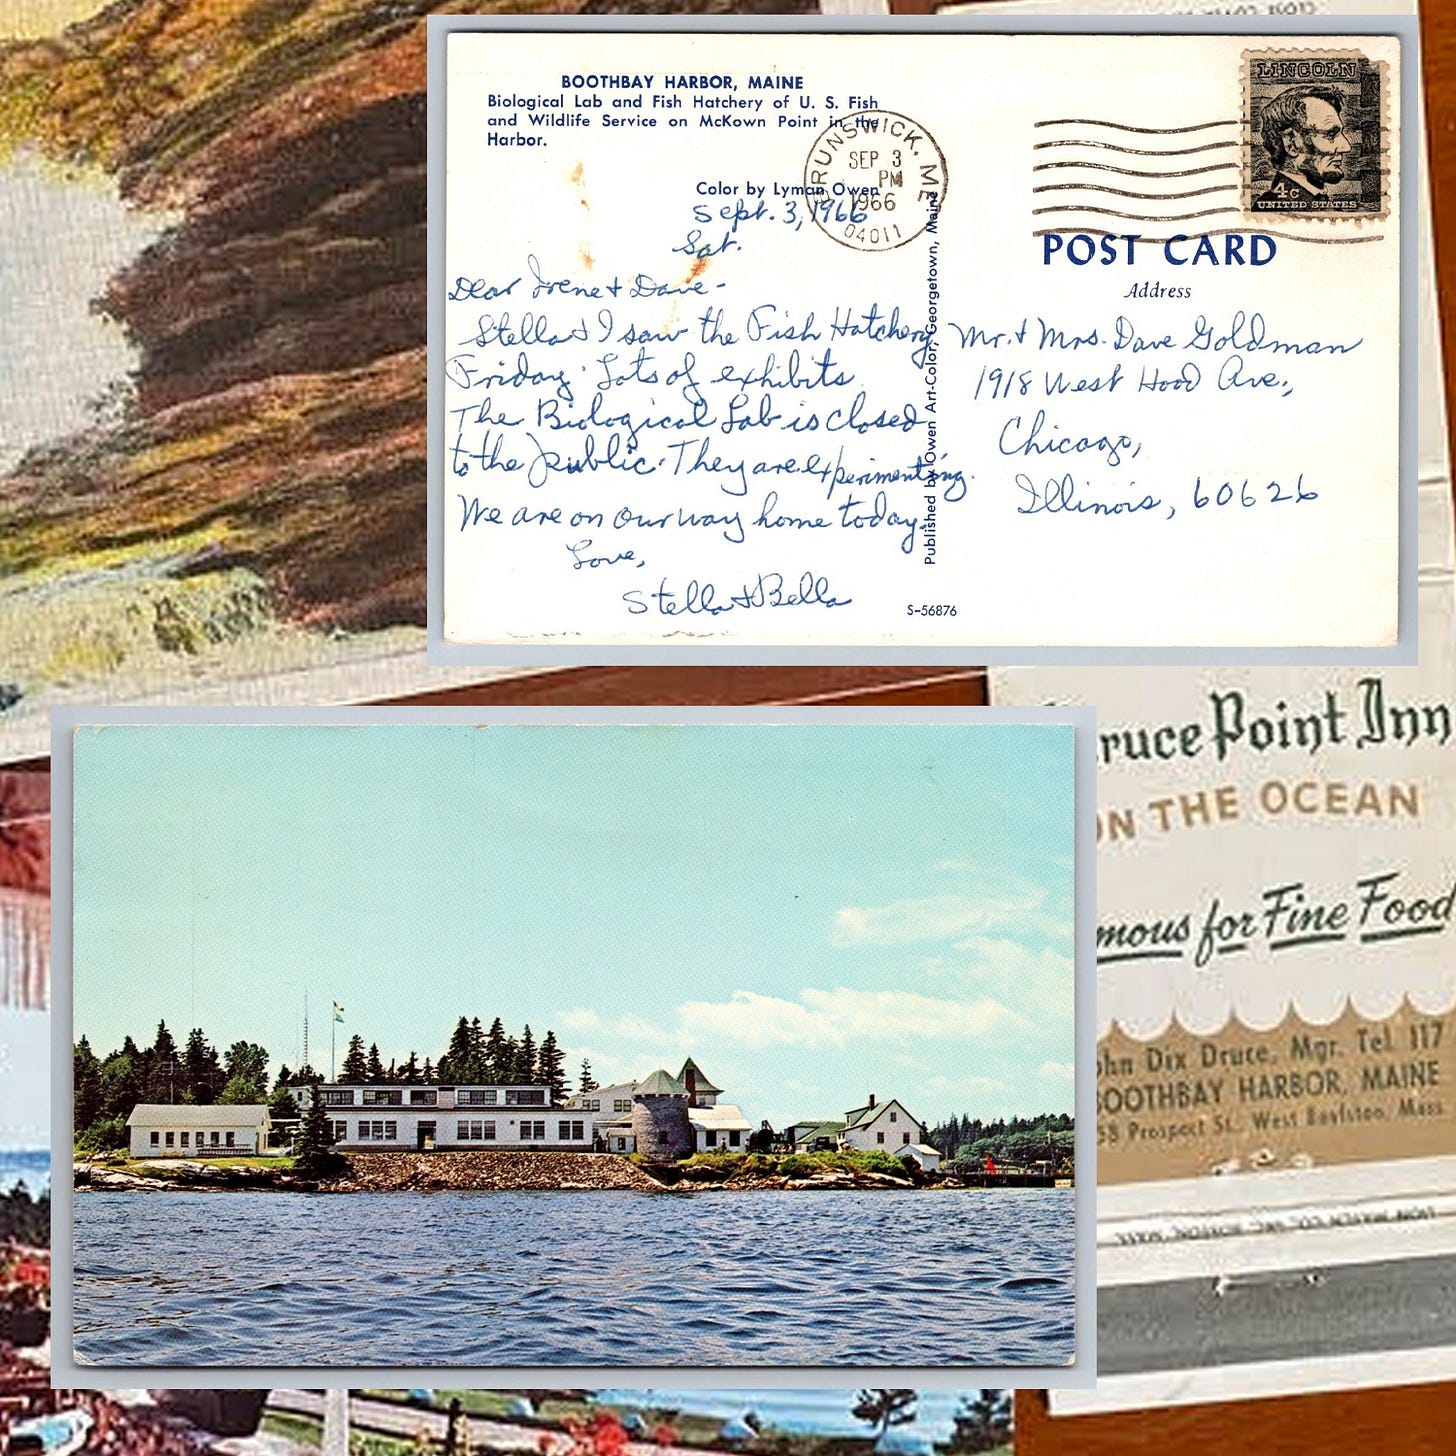 BOOTHBAY HARBOR, MAINE
Biological Lab and Fish Hatchery of U. S. Fish
and Wildlife Service on McKown Point in the
Harbor.
Color by Lyman Owen
BRUNSWICK, ME
SEP 3
PM
1966
04011
Sept. 3, 1966
Sat.
Dear Irene & Dave -
Stella & I saw the Fish Hatchery
Friday. Lots of exhibits.
The Biological Lab is closed
to the public. They are experimenting.
We are on our way home today.
Love,
Stella & Bella
Published by Owen Art-Color, Georgetown, Maine
S-56876
LINCOLN
4c
UNITED STATES
POST CARD
Address
Mr. & Mrs. Dave Goldman
1918 West Hood Ave.,
Chicago,
Illinois, 60626
ruce Point Inn
ON THE OCEAN
mous for Fine Food
ohn Dix Druce, Mgr. Tel. 117
BOOTHBAY HARBOR, MAINE
58 Prospect St., West Boylston, Mass